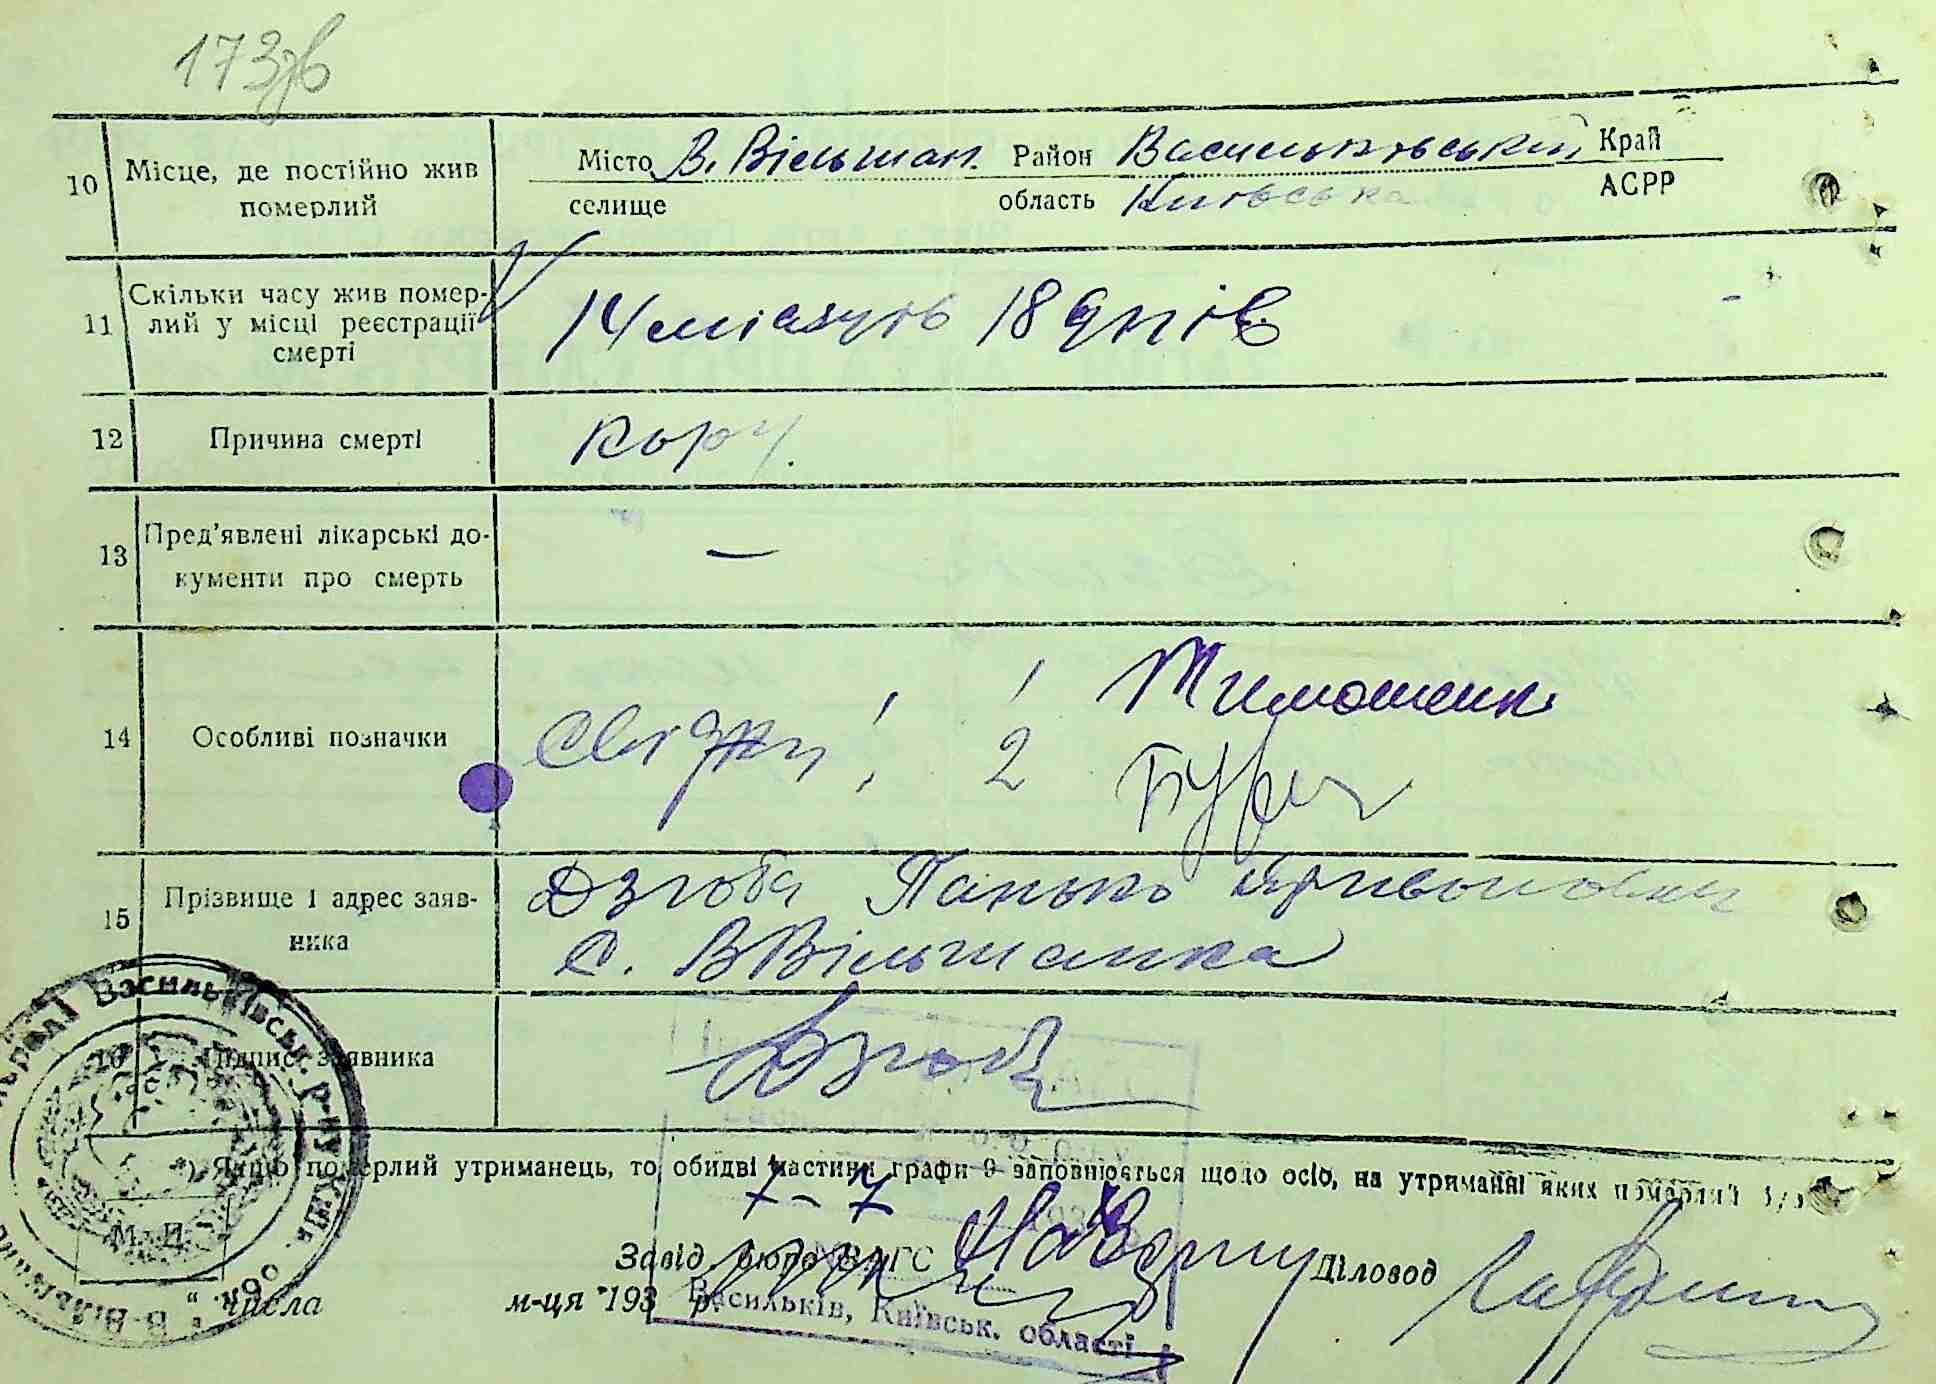 173зв
10 Місце, де постійно жив померлий
Місто В. Вільшан. Район Васильківський Край
селище область Київська АСРР
11 Скільки часу жив померлий у місці реєстрації смерті
14 місяців 18 днів
12 Причина смерті
кору.
13 Пред'явлені лікарські документи про смерть
—
14 Особливі позначки
Свідки: 1 Тимошенк
2
15 Прізвище і адрес заявника
Дзюба Панько
с. ВВільшанка
16 Підпис заявника
Дзюба
*) Якщо померлий утриманець, то обидві частини графи 9 заповнюється щодо осіб, на утриманні яких померлий
М. П.
Завід. бюро ЗАГС Діловод
„ числа м-ця 193 р.
Васильківськ. р-ну Київ. обл.
Васильків, Київськ. області